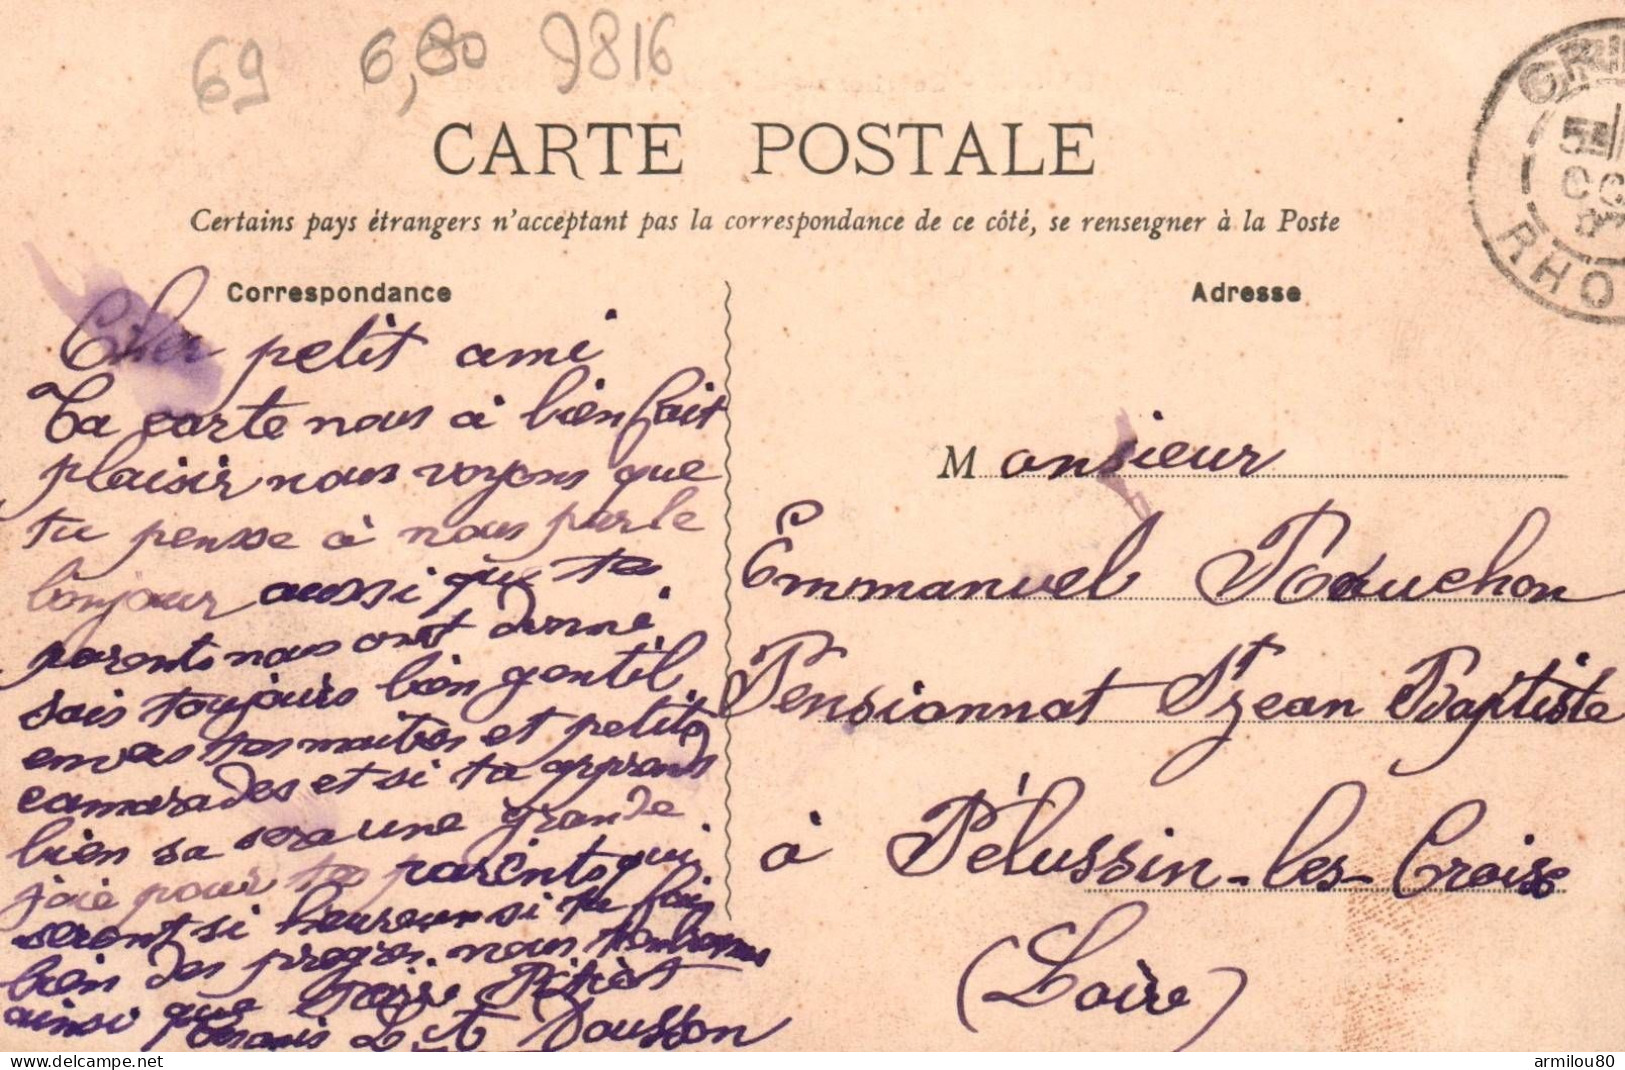 69 6,80 9816
CARTE POSTALE
Certains pays étrangers n'acceptant pas la correspondance de ce côté, se renseigner à la Poste
Correspondance
Cher petit ami
Ta carte nous à bien fait
plaisir nous voyons que
tu pense à nous par le
bonjour aussi que tes
parents nous ont donné
sois toujours bien gentil
envers tes maitres et petits
camarades et si tu apprends
bien sa sera une grande
joie pour tes parents qui
seront si heureux si tu fais
bien des progrès. nous t'embrassons
ainsi que
Dousson
Adresse
Monsieur
Emmanuel Rouchon
Pensionnat St Jean Baptiste
à Pélussin-les-Croix
(Loire)
RHO
armilou80